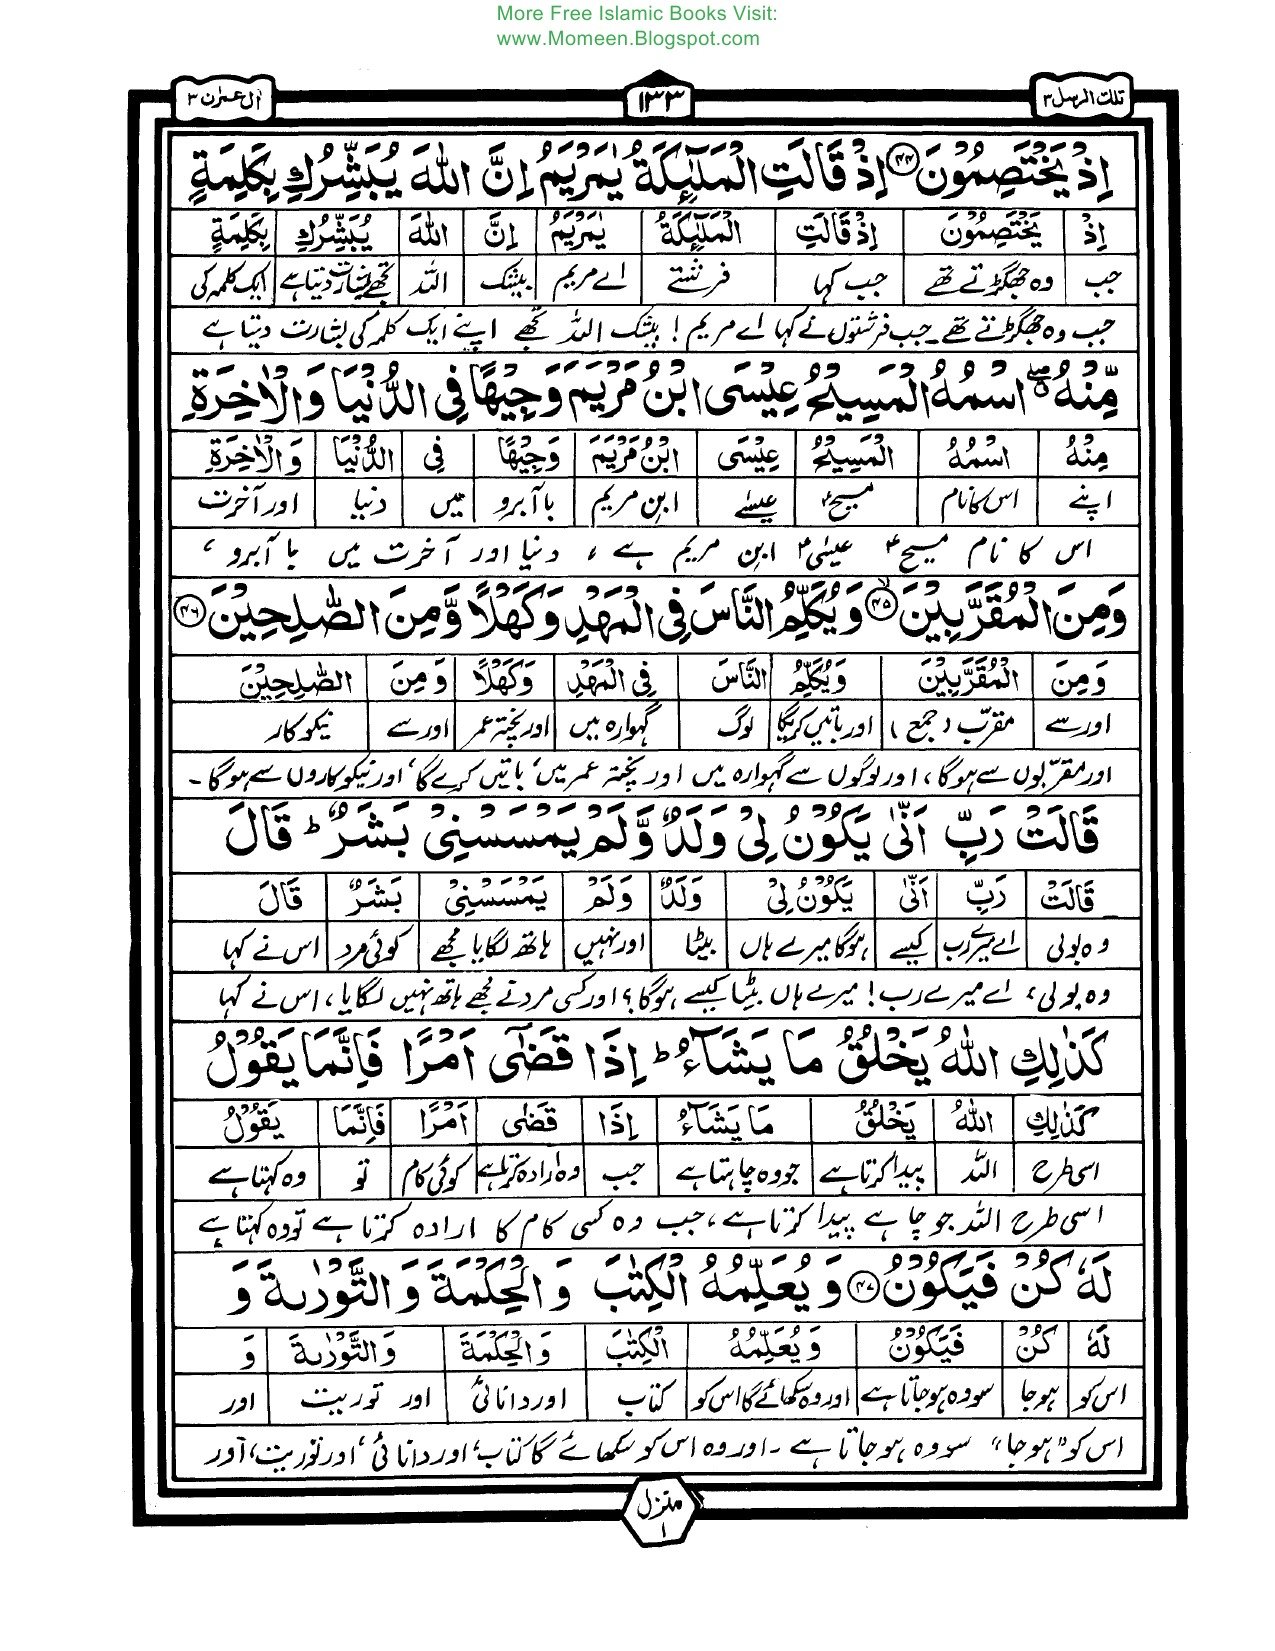 More Free Islamic Books Visit:
www.Momeen.Blogspot.com
تلك الرسل ۳ ۱۳۳ اٰل عمرٰن ۳
اِذْ يَخْتَصِمُوْنَ ﴿۴۴﴾ اِذْ قَالَتِ الْمَلٰٓئِكَةُ يٰمَرْيَمُ اِنَّ اللّٰهَ يُبَشِّرُكِ بِكَلِمَةٍ
اِذْ يَخْتَصِمُوْنَ اِذْ قَالَتِ الْمَلٰٓئِكَةُ يٰمَرْيَمُ اِنَّ اللّٰهَ يُبَشِّرُكِ بِكَلِمَةٍ
جب وہ جھگڑتے تھے جب کہا فرشتے اے مریم بیشک اللہ تجھے بشارت دیتا ہے ایک کلمہ کی
جب وہ جھگڑتے تھے۔ جب فرشتوں نے کہا اے مریم! بیشک اللہ تجھے اپنے ایک کلمہ کی بشارت دیتا ہے
مِّنْهُ ۖ اسْمُهُ الْمَسِيْحُ عِيْسَى ابْنُ مَرْيَمَ وَجِيْهًا فِى الدُّنْيَا وَالْاٰخِرَةِ
مِنْهُ اسْمُهُ الْمَسِيْحُ عِيْسَى ابْنُ مَرْيَمَ وَجِيْهًا فِى الدُّنْيَا وَالْاٰخِرَةِ
اپنے اس کا نام مسیحؑ عیسٰے ابن مریم با آبرو میں دنیا اور آخرت
اس کا نام مسیحؑ عیسٰیؑ ابن مریم ہے، دنیا اور آخرت میں با آبرو،
وَمِنَ الْمُقَرَّبِيْنَ ﴿۴۵﴾ وَيُكَلِّمُ النَّاسَ فِى الْمَهْدِ وَكَهْلًا وَّمِنَ الصّٰلِحِيْنَ ﴿۴۶﴾
وَمِنَ الْمُقَرَّبِيْنَ وَيُكَلِّمُ النَّاسَ فِى الْمَهْدِ وَكَهْلًا وَمِنَ الصّٰلِحِيْنَ
اور سے مقرب (جمع) اور باتیں کریگا لوگ گہوارہ میں اور پختہ عمر اور سے نیکو کار
اور مقرّبوں سے ہوگا، اور لوگوں سے گہوارہ میں اور پختہ عمر میں، باتیں کرے گا، اور نیکو کاروں سے ہوگا۔
قَالَتْ رَبِّ اَنّٰى يَكُوْنُ لِىْ وَلَدٌ وَّلَمْ يَمْسَسْنِىْ بَشَرٌ ؕ قَالَ
قَالَتْ رَبِّ اَنّٰى يَكُوْنُ لِىْ وَلَدٌ وَلَمْ يَمْسَسْنِىْ بَشَرٌ قَالَ
وہ بولی اے میرے رب کیسے ہوگا میرے ہاں بیٹا اور نہیں ہاتھ لگایا مجھے کوئی مرد اس نے کہا
وہ بولی، اے میرے رب! میرے ہاں بیٹا کیسے ہوگا؟ اور کسی مرد نے مجھے ہاتھ نہیں لگایا، اس نے کہا
كَذٰلِكِ اللّٰهُ يَخْلُقُ مَا يَشَآءُ ؕ اِذَا قَضٰٓى اَمْرًا فَاِنَّمَا يَقُوْلُ
كَذٰلِكِ اللّٰهُ يَخْلُقُ مَا يَشَآءُ اِذَا قَضٰى اَمْرًا فَاِنَّمَا يَقُوْلُ
اسی طرح اللہ پیدا کرتا ہے جو وہ چاہتا ہے جب وہ ارادہ کرتا ہے کوئی کام تو وہ کہتا ہے
اسی طرح اللہ جو چاہے پیدا کرتا ہے، جب وہ کسی کام کا ارادہ کرتا ہے تو وہ کہتا ہے
لَهٗ كُنْ فَيَكُوْنُ ﴿۴۷﴾ وَيُعَلِّمُهُ الْكِتٰبَ وَالْحِكْمَةَ وَالتَّوْرٰىةَ وَ
لَهٗ كُنْ فَيَكُوْنُ وَيُعَلِّمُهُ الْكِتٰبَ وَالْحِكْمَةَ وَالتَّوْرٰىةَ وَ
اس کو ہو جا سو وہ ہو جاتا ہے اور وہ سکھائے گا اس کو کتاب اور دانائی اور توریت اور
اس کو "ہو جا" سو وہ ہو جاتا ہے۔ اور وہ اس کو سکھائے گا کتاب، اور دانائی، اور توریت، اور
منزل
۱